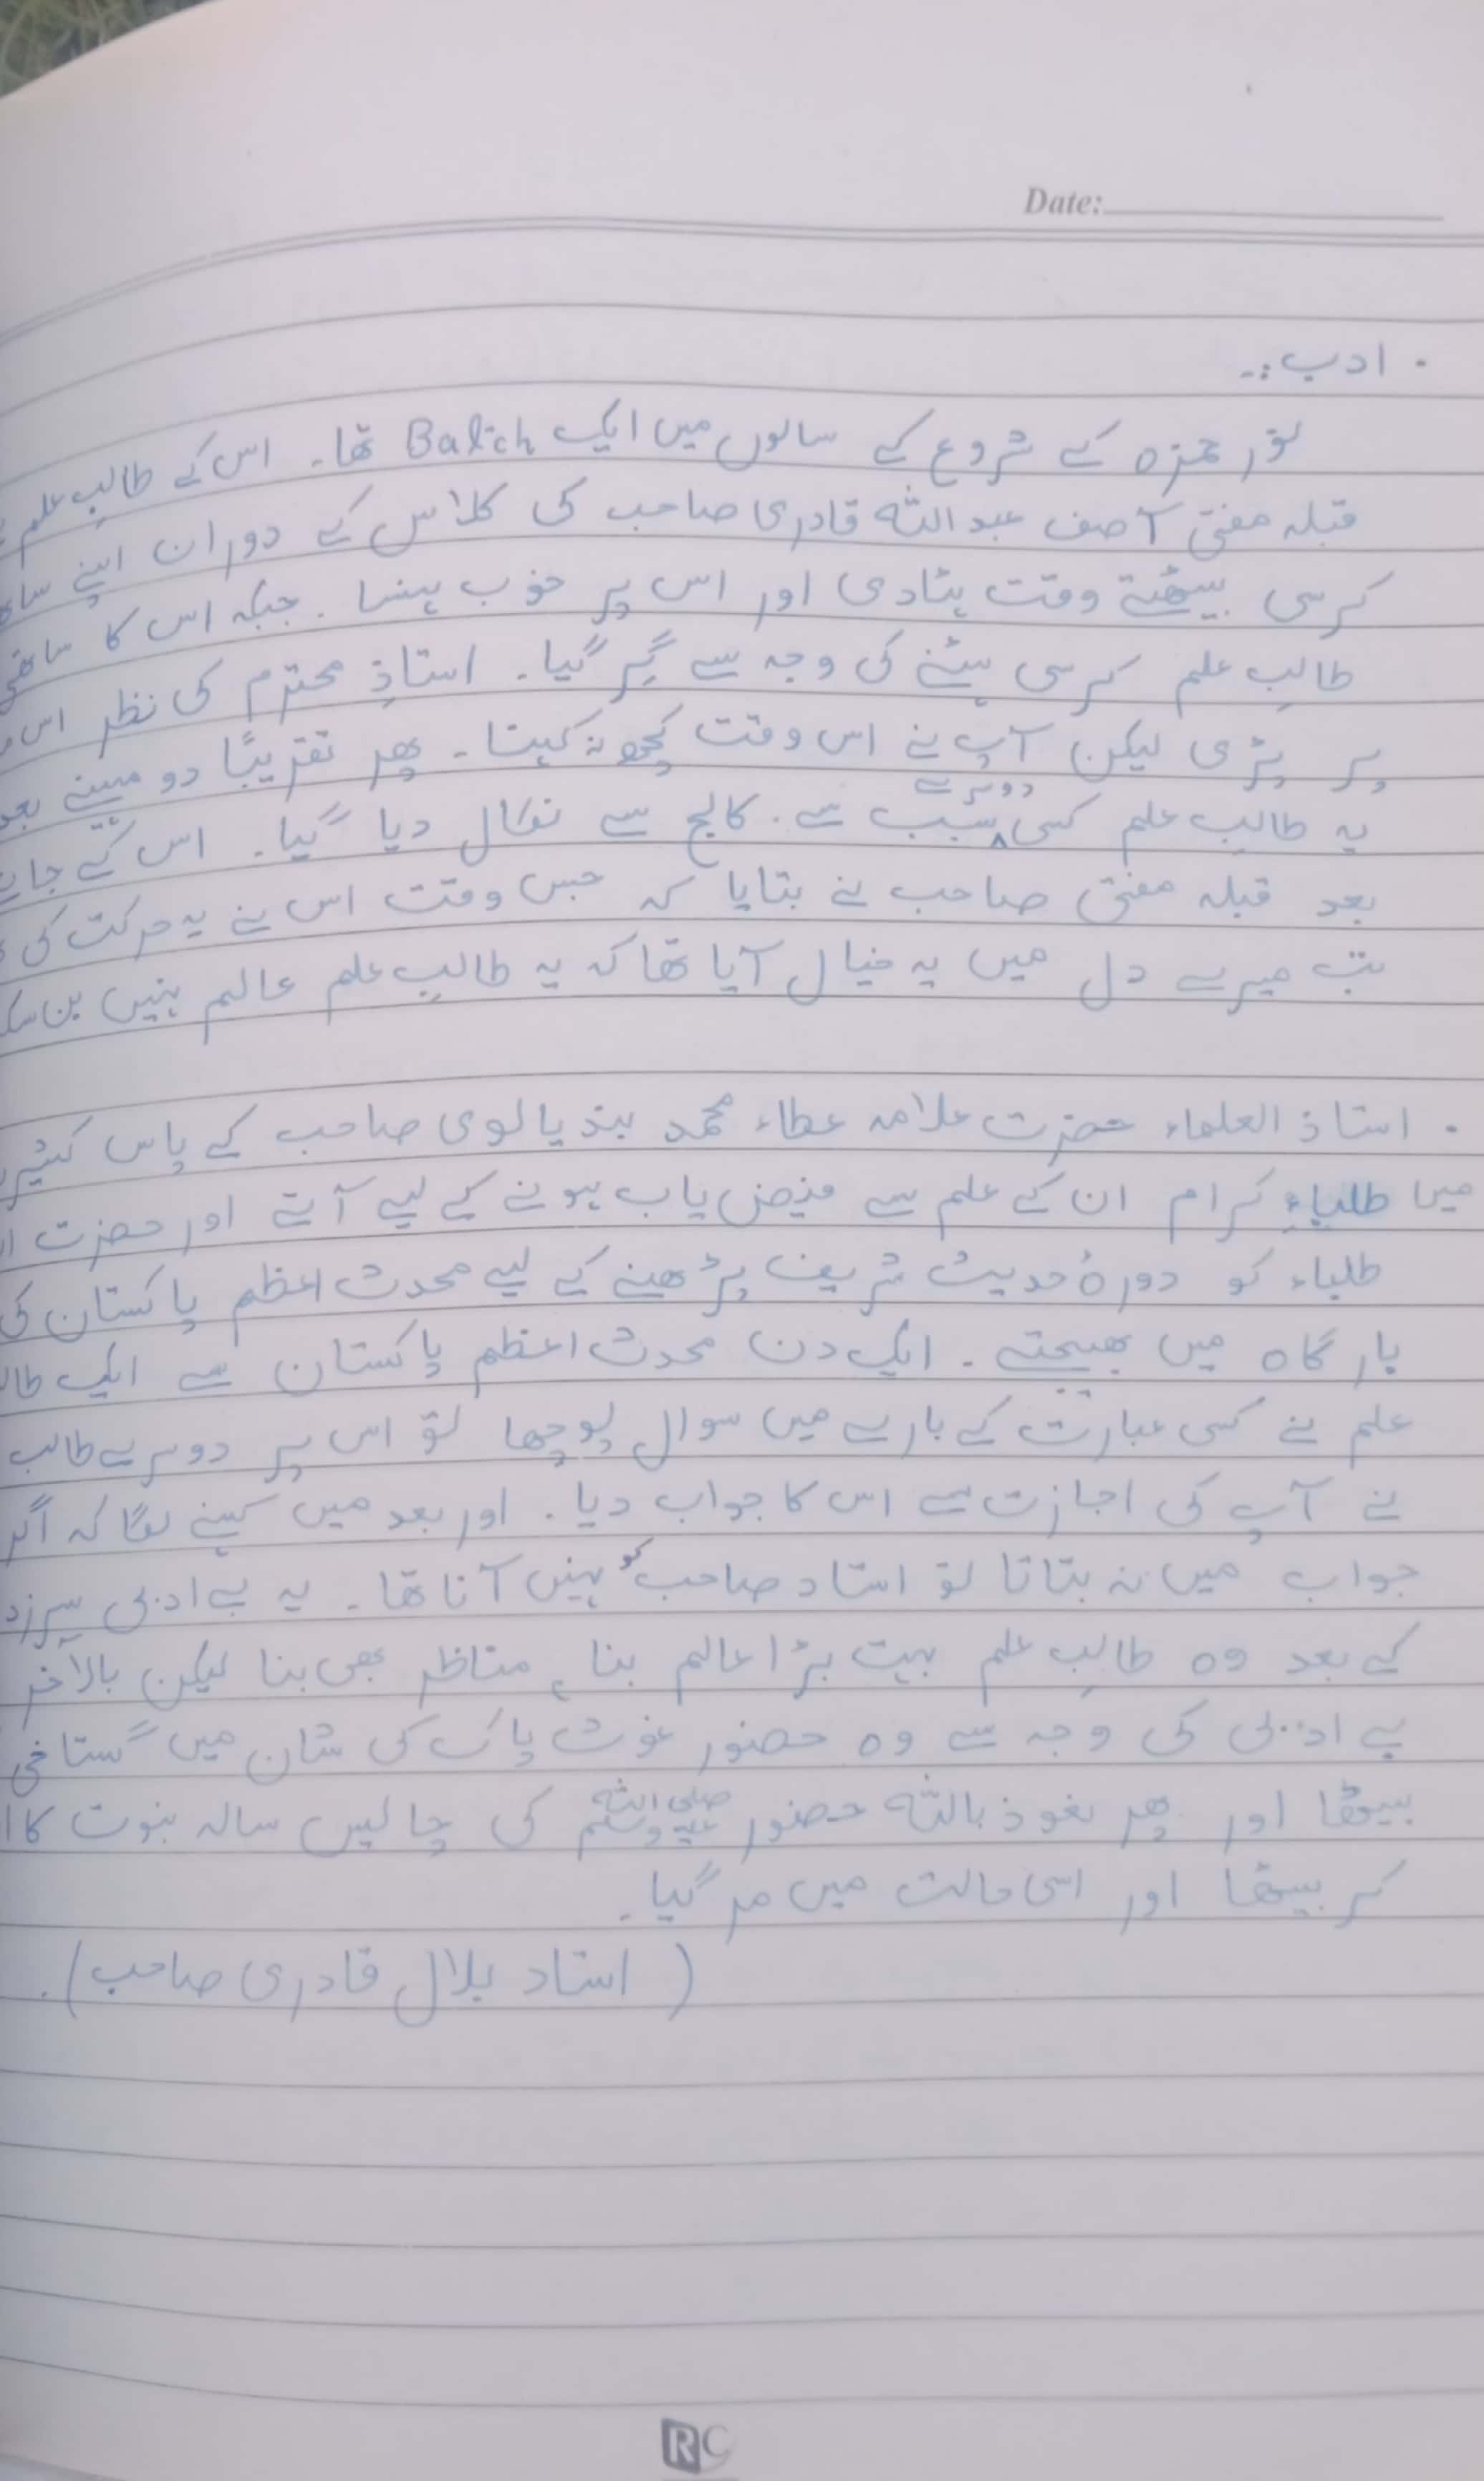 Date:
. ادب :۔
نور حمزہ کے شروع کے سالوں میں ایک Batch تھا۔ اس کے طالبِ علم
قبلہ مفتی آصف عبداللہ قادری صاحب کی کلاس کے دوران اپنے
کرسی بیٹھتے وقت ہٹادی اور اس پر خوب ہنسا۔ جبکہ اس کا ساتھی
طالبِ علم کرسی ہٹنے کی وجہ سے گِر گیا۔ استاذِ محترم کی نظر اس
پر پڑی لیکن آپ نے اس وقت کچھ نہ کہا۔ پھر تقریباً دو مہینے بعد
یہ طالبِ علم کسی دوسرے سبب سے۔ کالج سے نکال دیا گیا۔ اس کے
بعد قبلہ مفتی صاحب نے بتایا کہ جس وقت اس نے یہ حرکت کی
تب میرے دل میں یہ خیال آیا تھا کہ یہ طالبِ علم عالم نہیں بن
. استاذ العلماء حضرت علامہ عطاء محمد بندیالوی صاحب کے پاس کثیر
میں طلباءِ کرام ان کے علم سے فیض یاب ہونے کے لیے آتے اور حضرت
طلباء کو دورۂ حدیث شریف پڑھنے کے لیے محدث اعظم پاکستان کی
بارگاہ میں بھیجتے۔ ایک دن محدث اعظم پاکستان سے ایک
علم نے کسی عبارت کے بارے میں سوال پوچھا تو اس پر دوسرے طالب
نے آپ کی اجازت سے اس کا جواب دیا۔ اور بعد میں کہنے لگا کہ اگر
جواب میں نہ بتاتا تو استاد صاحب کو نہیں آنا تھا۔ یہ بے ادبی
کے بعد وہ طالبِ علم بہت بڑا عالم بنا، مناظر بھی بنا لیکن بالآخر
بے ادبی کی وجہ سے وہ حضور غوث پاک کی شان میں گستاخی
بیٹھا اور پھر نعوذ باللہ حضور صلی اللہ علیہ وسلم کی چالیس سالہ نبوت کا
کر بیٹھا اور اسی حالت میں مر گیا۔
(استاد بلال قادری صاحب)۔
RC